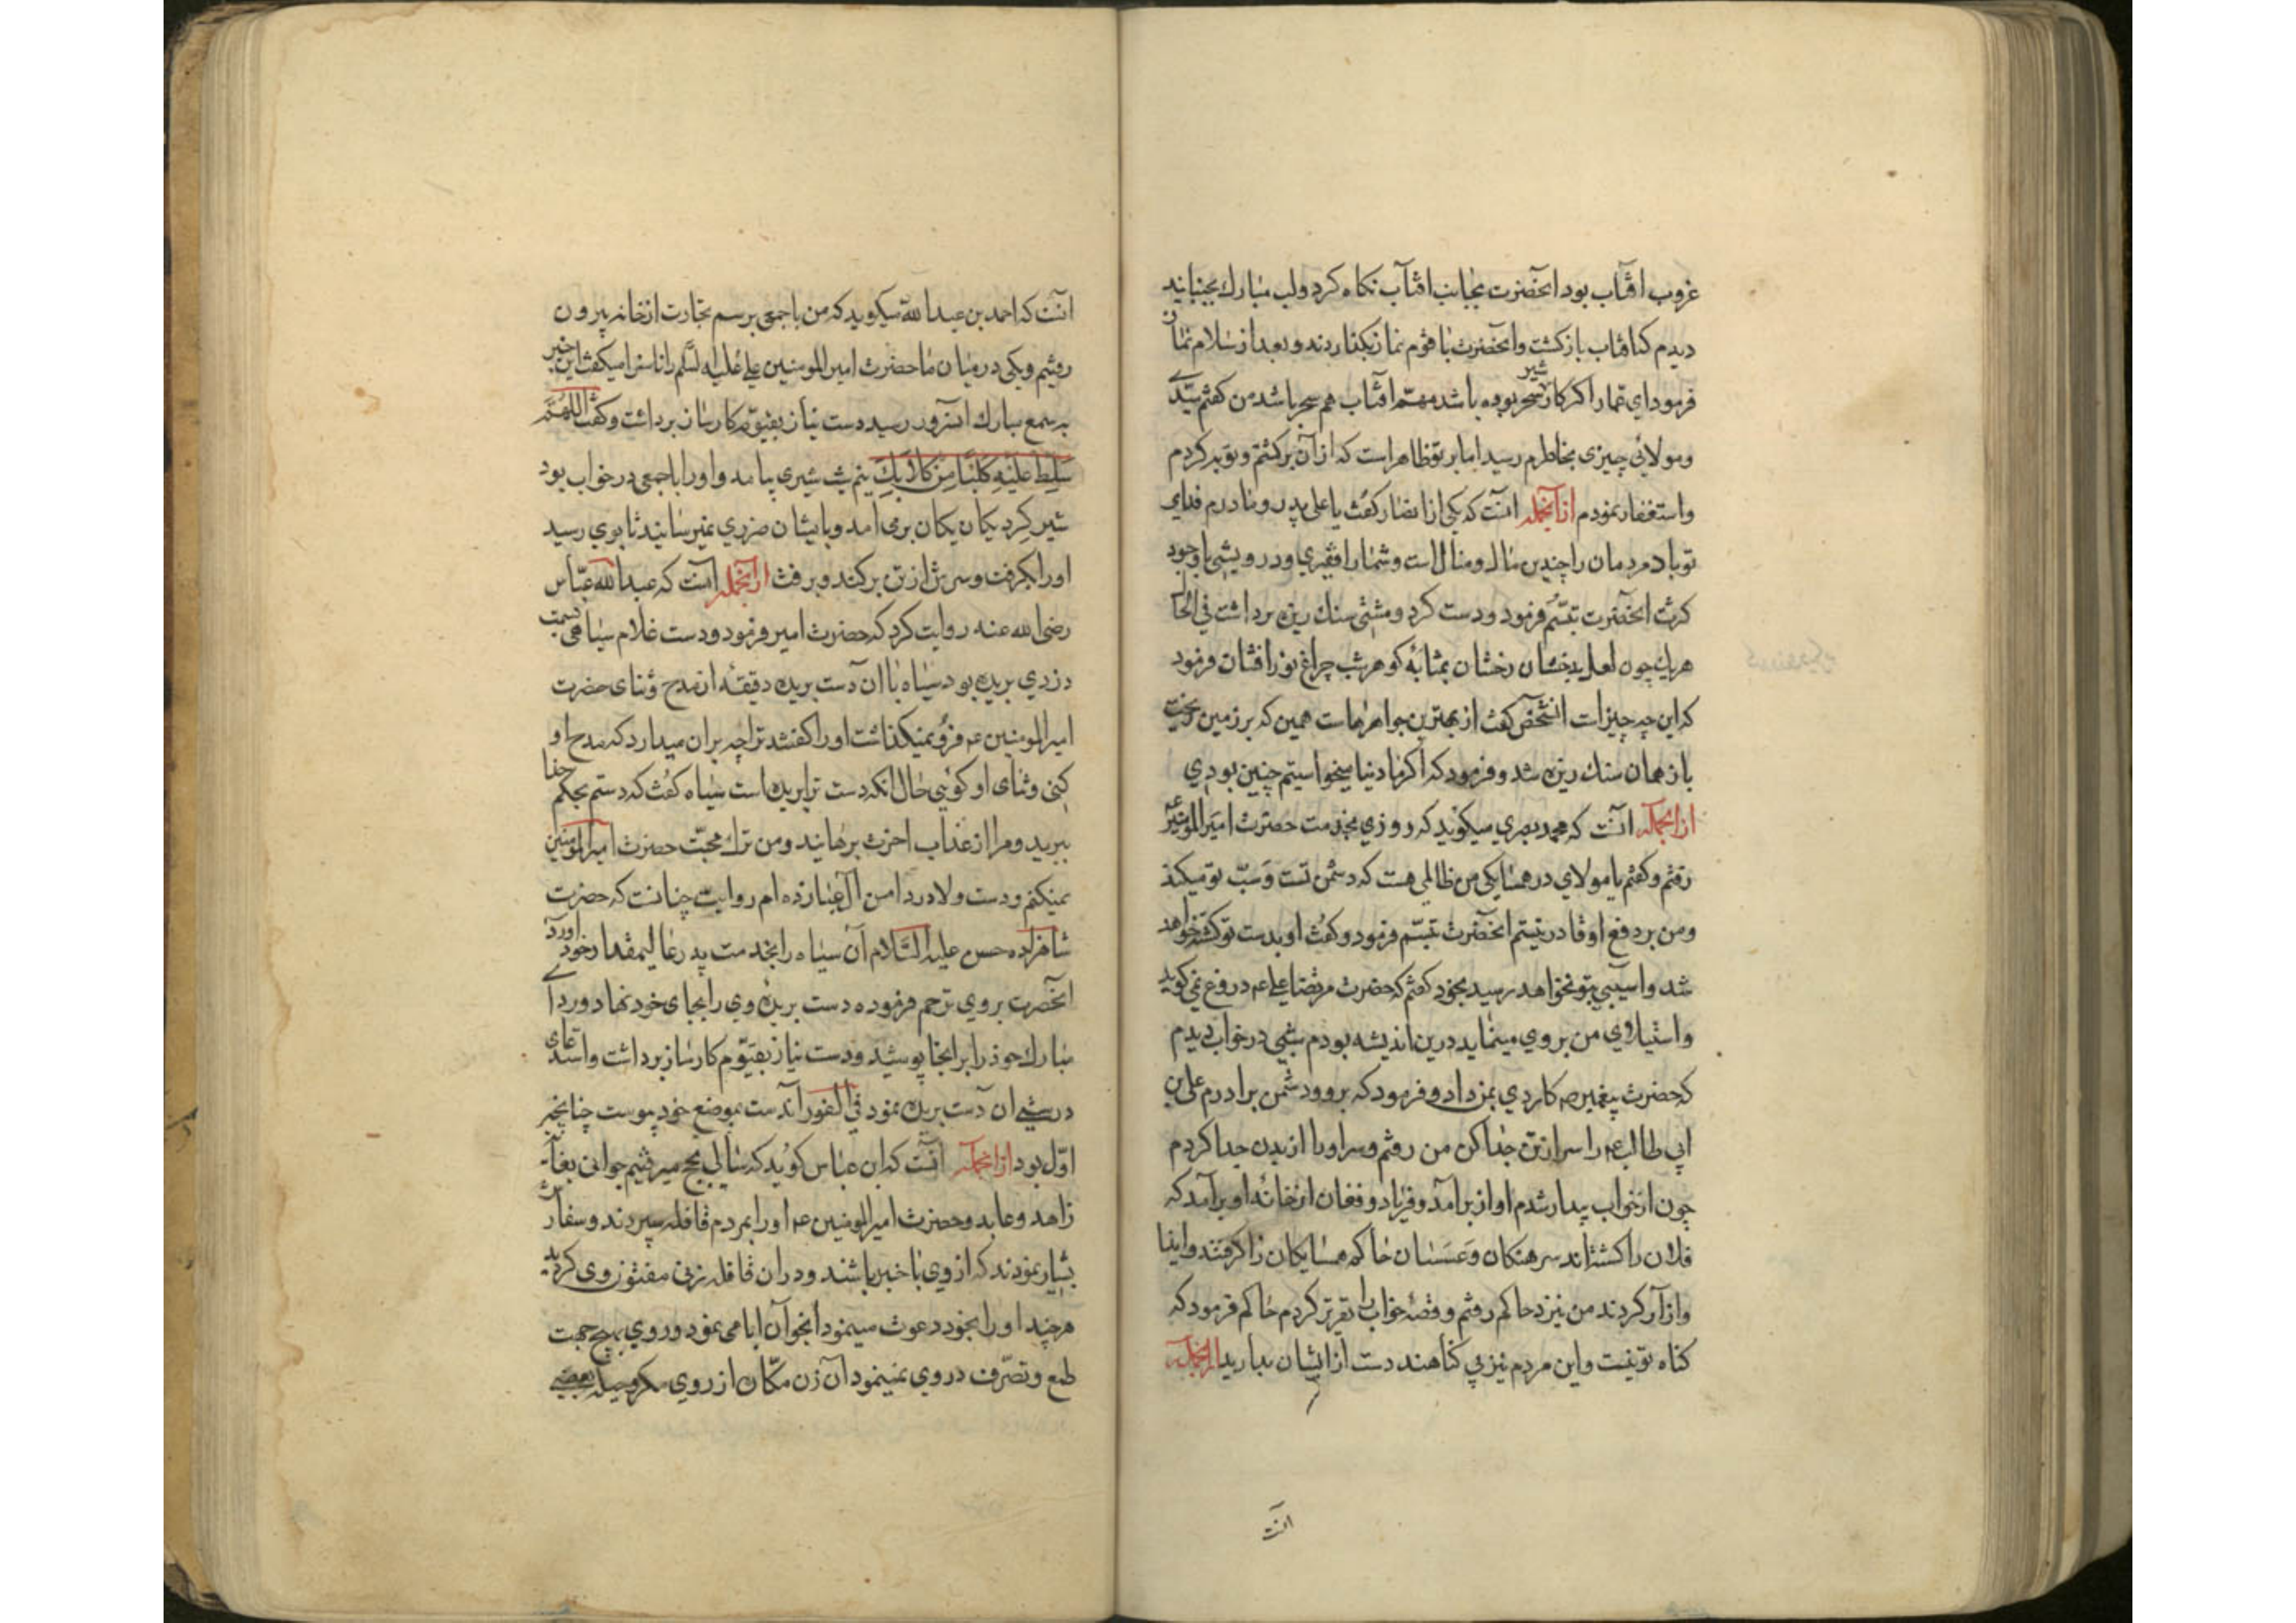 غروب افتاب بود انحضرت بجانب افتاب نكاه كرد و لب مبارك بجنبانيد
ديدم كه افتاب بازكشت و انحضرت با قوم نماز بكذاردند و بعد از سلام نماز
فرمود اى عمار اكر كار شير سحر بوده باشد مهم افتاب هم سحر باشد من كفتم سيدى
و مولائى چيزى بخاطرم رسيد اما بر تو ظاهر است كه از آن بركشتم و توبه كردم
و استغفار نمودم ازانجمله انست كه يكى از انصار كفت يا على پدر و مادرم فداى
تو باد مردمان را چندين مال و منال است و شما را فقيرى و درويشى با وجود
كرت انحضرت تبسم فرمود و دست كرد و مشتى سنك ريزه برداشت فى الحال
هر يك چون لعل بدخشان رخشان بمثابه كوهر شب چراغ نور افشان فرمود
كه اين چه چيز است انشخص كفت از بهترين جواهرهاست همين كه بر زمين ريخت
باز همان سنك ريزه شد و فرمود كه اكر ما دنيا ميخواستيم چنين بودى
ازانجمله انست كه محمد بصرى ميكويد كه روزى بخدمت حضرت امير المومنين
رفتم و كفتم يا مولاى در همسايكى من ظالمى هست كه دشمن تست و سب تو ميكند
و من بر دفع او قادر نيستم انحضرت تبسم فرمود و كفت او بدست تو كشته خواهد
شد و اسيبى بتو نخواهد رسيد بخود كفتم كه حضرت مرتضا على ع دروغ نمى كويد
و استيلاى من بر وى مينمايد درين انديشه بودم شبى در خواب ديدم
كه حضرت پيغمبر ص كاردى بمن داد و فرمود كه برو و دشمن برادرم على بن
ابى طالب ع را سر از تن جدا كن من رفتم و سر او را از بدن جدا كردم
چون از خواب بيدار شدم اواز برامد و فرياد و فغان از خانه او برآمد كه
فلان را كشته اند سرهنكان و عسسان حاكم همسايكان را كرفتند و ايذا
و ازار كردند من نيزد حاكم رفتم و قصه خواب را تقرير كردم حاكم فرمود كه
كناه تو نيست و اين مردم نيز بى كناهند دست از ايشان بداريد ازانجمله
انست
انست كه احمد بن عبد الله ميكويد كه من با جمعى برسم تجارت از خانه بيرون
رفتيم و يكى در ميان ما حضرت امير المومنين على عليه السلم را ناسزا ميكفت اين خبر
بسمع مبارك انسرور رسيد دست نياز بقيوم كارساز برداشت و كفت اللهم
سلط عليه كلبا من كلابك نيم شب شيرى بيامد و او را با جمعى در خواب بود
شير كرد يكان يكان برمى امد و بايشان ضررى نميرسانيد تا بوى رسيد
او را بكرفت و سرش از تن بركند و برفت ازانجمله انست كه عبد الله عباس
رضى الله عنه روايت كرد كه حضرت امير فرمود و دست غلام سياهى بتهمت
دزدى بريده بود سياه با ان دست بريده دقيقه از مدح و ثناى حضرت
امير المومنين ع فرو نميكذاشت او را كفتند ترا چه بران ميدارد كه مدح او
كنى و ثناى او كوئى حال انكه دست ترا بريده است سياه كفت كه دستم بحكم خدا
ببريد و مرا از عذاب اخرت برهانيد و من ترك محبت حضرت امير المومنين
نميكنم و دست ولا در دامن آل عبا زده ام روايت چنانست كه حضرت
شاهزاده حسن عليه السلام آن سياه را بخدمت پدر عاليمقدار خود آورد
انحضرت بروى ترحم فرموده دست بريده وى را بجاى خود نهاد و رداى
مبارك خود را بر انجا پوشيد و دست نياز بقيوم كارساز برداشت و استدعاى
درستى ان دست بريده نمود فى الفور آندست بموضع خود پيوست چنانچه
اول بود ازانجمله انست كه ابن عباس كويد كه سالى بحج ميرفتيم جوانى بغايت
زاهد و عابد و حضرت امير المومنين ع او را بمردم قافله سپردند و سفارش
بسيار نمودند كه از وى با خبر باشند و دران قافله زنى مفتون وى كرديد
هرچند او را بخود دعوت مينمود انجوان ابا مى نمود و روى بهيچ جهت
طمع و تصرف در وى نمينمود آن زن مكاره از روى مكر و حيله